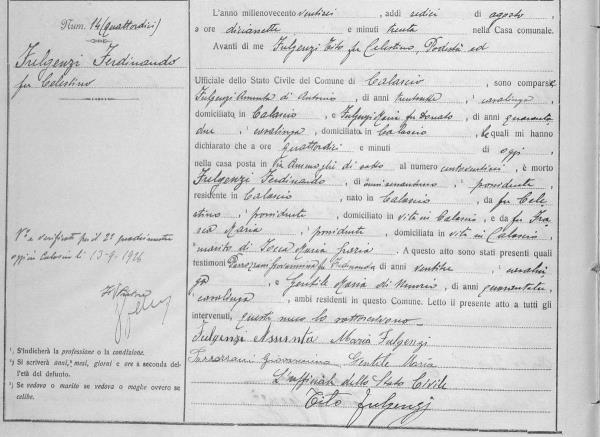 Num. 14 (quattordici)
Fulgenzi Ferdinando
fu Celestino
Vo e verificato pel 2o quadrimestre
oggi in Calascio li 13-9-1926
¹). S'indicherà la professione o la condizione.
²) Si scriverà anni, mesi, giorni e ore a seconda del-
l'età del defunto.
³) Se vedovo o marito se vedova o moglie ovvero se
celibe.
L'anno millenovecento ventisei, addì sedici di agosto,
a ore diciassette e minuti trenta nella Casa comunale.
Avanti di me Fulgenzi Tito fu Celestino, Podestà ed
Ufficiale dello Stato Civile del Comune di Calascio, sono comparse
Fulgenzi Assunta di Antonio, di anni, casalinga
domiciliato in Calascio, e Fulgenzi Maria fu Donato, di anni quaranta
due, casalinga, domiciliato in Calascio, le quali mi hanno
dichiarato che a ore quattordici e minuti di oggi,
nella casa posta in Via di sotto al numero centoventisei, è morto
Fulgenzi Ferdinando, di anni, possidente
residente in Calascio, nato in Calascio, da fu Cele
stino, possidente, domiciliato in vita in Calascio, e da fu
Maria, possidente, domiciliata in vita in Calascio,
marito di Maria Grazia. A questo atto sono stati presenti quali
testimoni Giovannina fu Ferdinando, di anni ventitre, casalin
ga, e Gentile Maria di, di anni quarantatre
casalinga, ambi residenti in questo Comune. Letto il presente atto a tutti gli
intervenuti, questi meco lo sottoscrivono
Fulgenzi Assunta Maria Fulgenzi
Giovannina Gentile Maria
L'ufficiale dello Stato Civile
Tito Fulgenzj